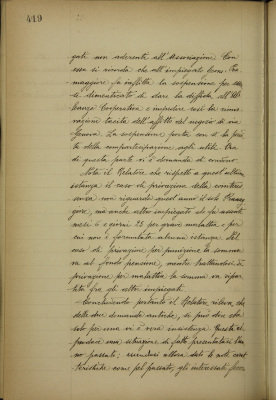 419
gati non aderente all'Associazione. Con
essa si ricorda che all'impiegato Cons. Tra
maggiore fu inflitta la sospensione per aver
si dimenticato di dare la disdetta all'Al
leanza Cooperativa e impedire così la rinno
vazione tacita dell'affitto del negozio di via
Genova. La sospensione porta con sè la perdi
ta della compartecipazione agli utili. Ora
di questa parte vi è domanda di condono
Nota il Relatore che rispetto a quest'ultima
istanza il caso di privazione della cointeres
senza non riguarda quest'anno il solo
giore, ma anche altro impiegato che fu assente
mesi 6 e giorni 25 per grave malattia e per
cui non è formulata alcuna istanza. Nel
caso di privazione per punizione la somma
va al fondo pensione, mentre trattandosi di
privazione per malattia la somma va ripar
tita fra gli altri impiegati.
Concludendo pertanto il Relatore rileva che
delle due domande antiche, si può dire che
solo per una vi è vera insistenza. Questa ri
guardava una istruzione di fatto presentatasi l'an
no passato; essendosi allora dato le note carat
teristiche come pel passato, gli interessati